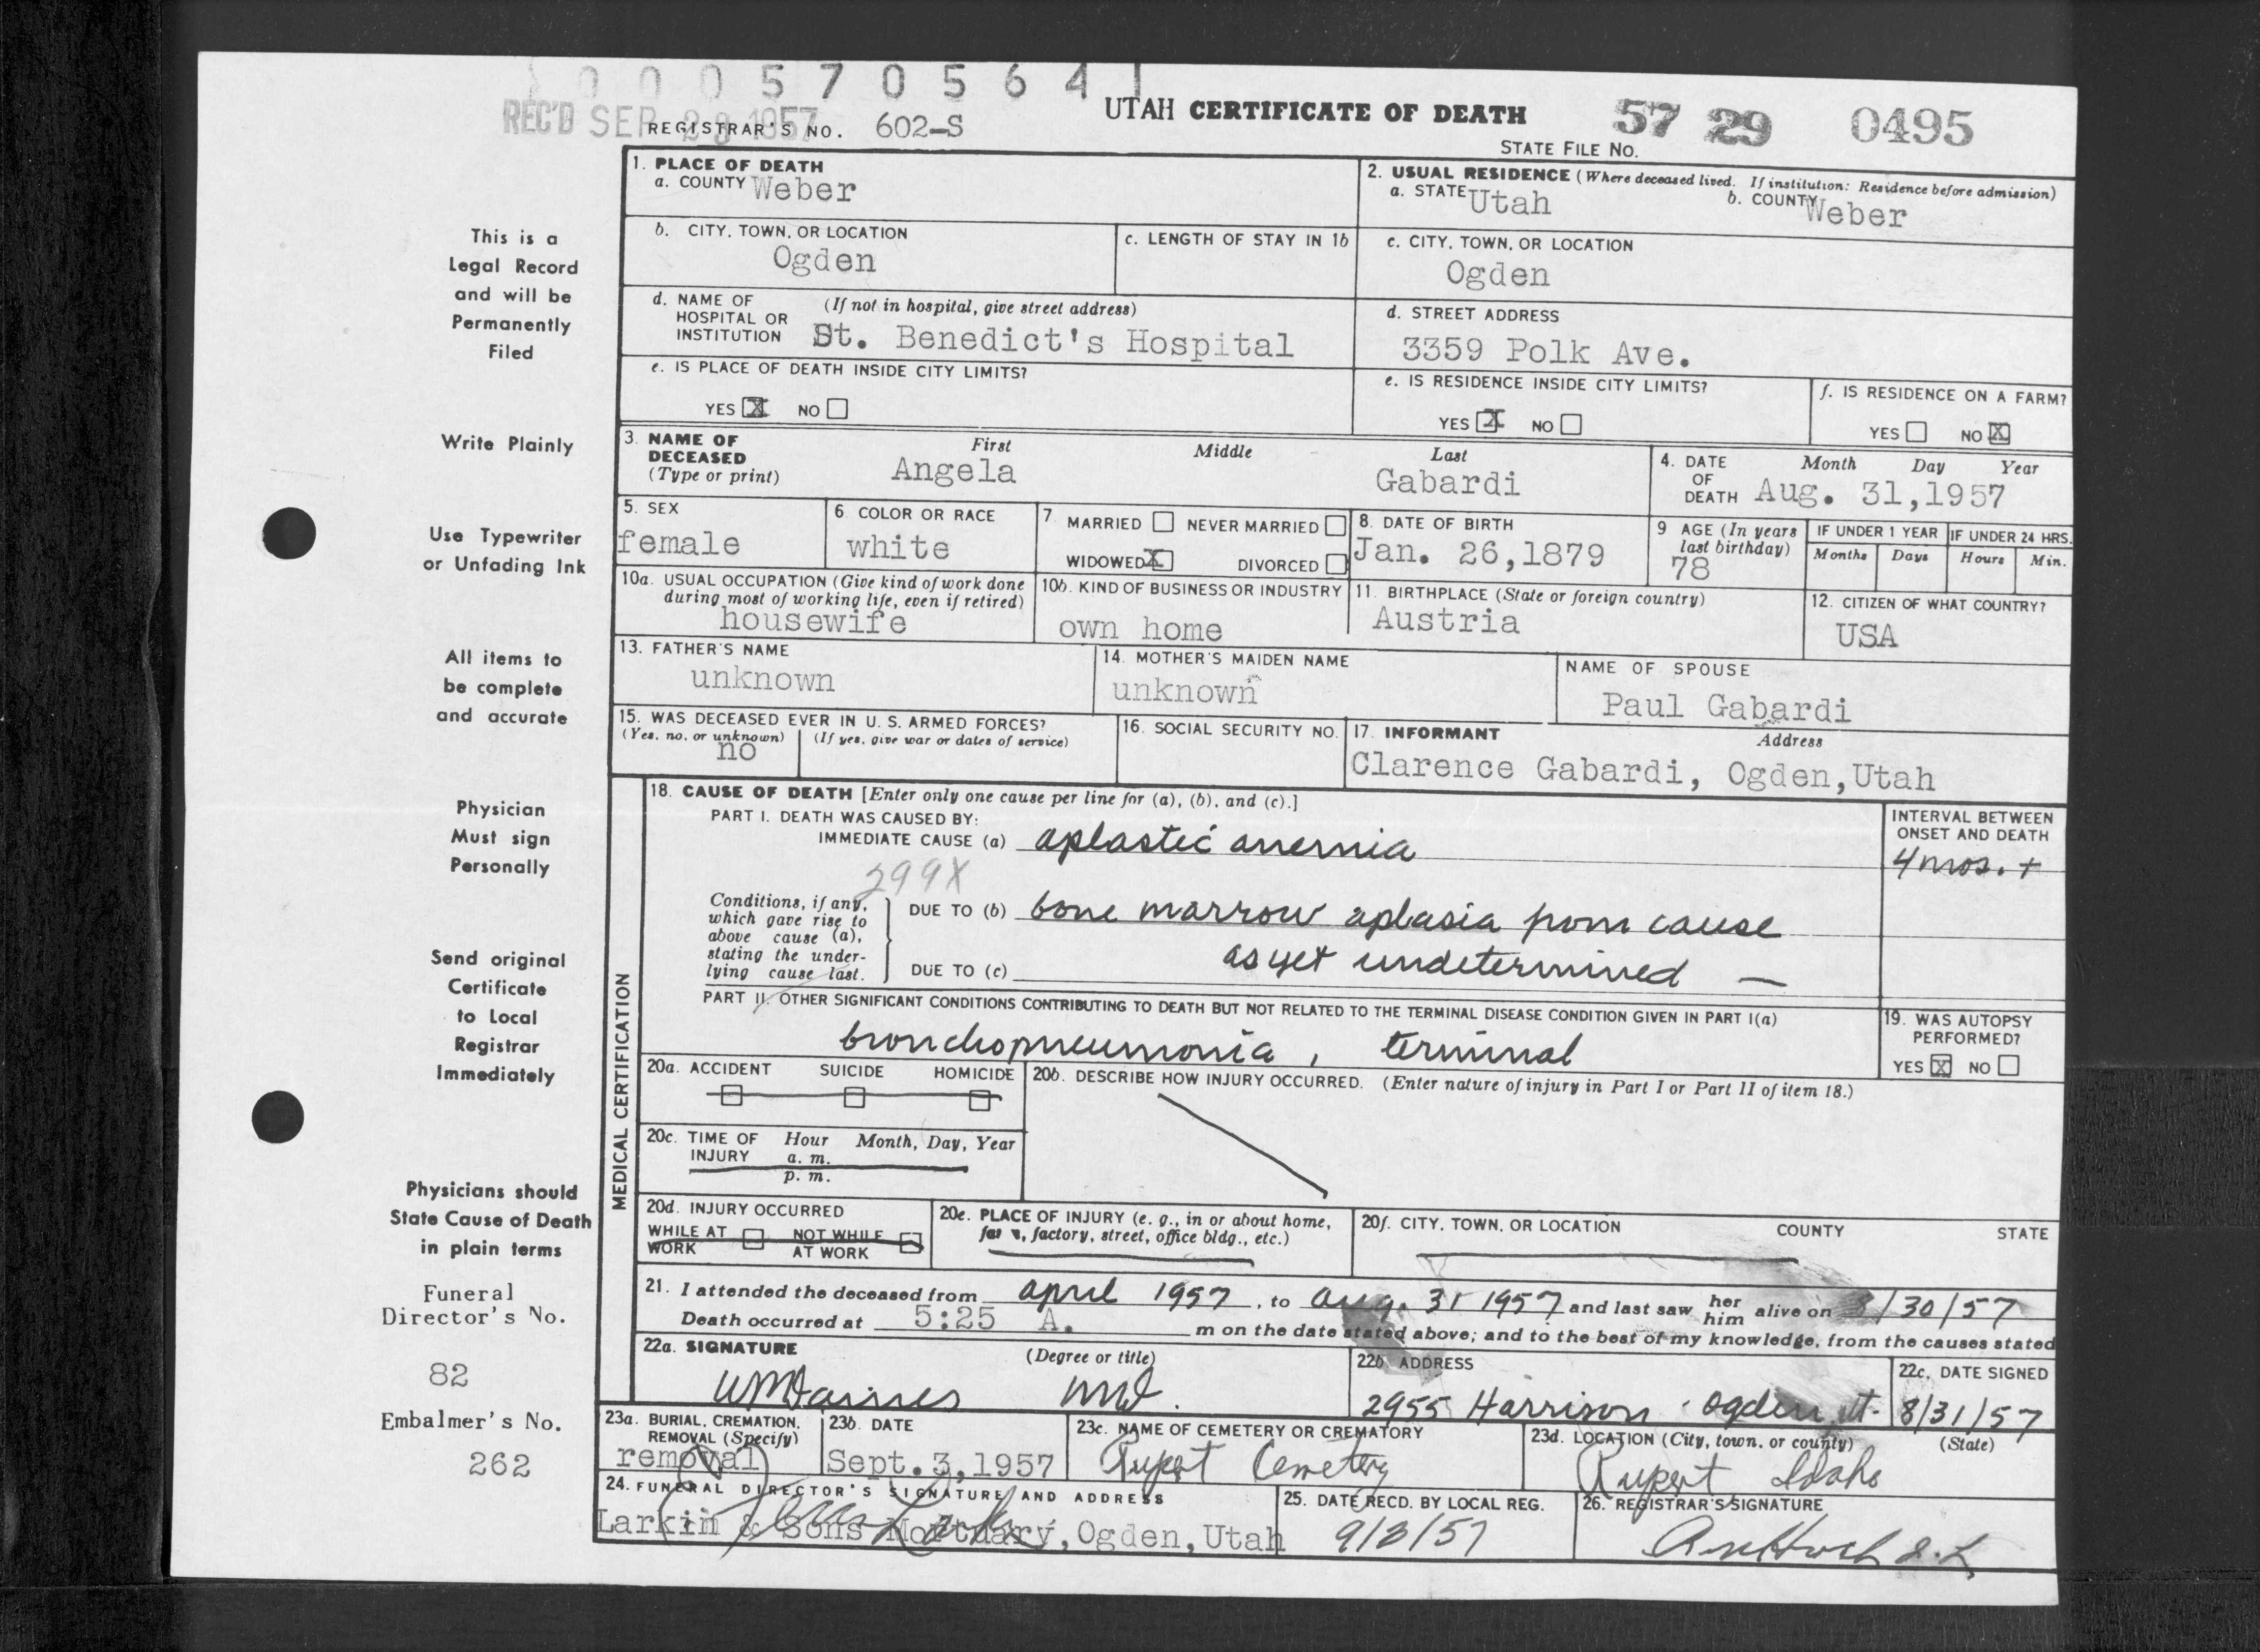 0 0 0 5 7 0 5 6 4 1
REC'D SEP 1957
REGISTRAR'S NO. 602-S
UTAH CERTIFICATE OF DEATH
57 29 0495
STATE FILE NO.
1. PLACE OF DEATH
a. COUNTY Weber
2. USUAL RESIDENCE (Where deceased lived. If institution: Residence before admission)
a. STATE Utah b. COUNTY Weber
b. CITY, TOWN, OR LOCATION
Ogden
c. LENGTH OF STAY IN 1b
c. CITY, TOWN, OR LOCATION
Ogden
d. NAME OF HOSPITAL OR INSTITUTION (If not in hospital, give street address)
St. Benedict's Hospital
d. STREET ADDRESS
3359 Polk Ave.
e. IS PLACE OF DEATH INSIDE CITY LIMITS?
YES X NO
e. IS RESIDENCE INSIDE CITY LIMITS?
YES X NO
f. IS RESIDENCE ON A FARM?
YES NO X
3. NAME OF DECEASED (Type or print)
First Middle Last
Angela Gabardi
4. DATE OF DEATH
Month Day Year
Aug. 31,1957
5. SEX
female
6. COLOR OR RACE
white
7. MARRIED NEVER MARRIED
WIDOWED X DIVORCED
8. DATE OF BIRTH
Jan. 26,1879
9 AGE (In years last birthday)
78
IF UNDER 1 YEAR
Months Days
IF UNDER 24 HRS.
Hours Min.
10a. USUAL OCCUPATION (Give kind of work done during most of working life, even if retired)
housewife
10b. KIND OF BUSINESS OR INDUSTRY
own home
11. BIRTHPLACE (State or foreign country)
Austria
12. CITIZEN OF WHAT COUNTRY?
USA
13. FATHER'S NAME
unknown
14. MOTHER'S MAIDEN NAME
unknown
NAME OF SPOUSE
Paul Gabardi
15. WAS DECEASED EVER IN U. S. ARMED FORCES?
(Yes, no, or unknown) (If yes, give war or dates of service)
no
16. SOCIAL SECURITY NO.
17. INFORMANT Address
Clarence Gabardi, Ogden,Utah
MEDICAL CERTIFICATION
18. CAUSE OF DEATH [Enter only one cause per line for (a), (b), and (c).]
PART I. DEATH WAS CAUSED BY:
IMMEDIATE CAUSE (a) aplastic anemia
INTERVAL BETWEEN ONSET AND DEATH
4 mos. +
299X
Conditions, if any, which gave rise to above cause (a), stating the underlying cause last.
DUE TO (b) bone marrow aplasia from cause
as yet undetermined —
DUE TO (c)
PART II. OTHER SIGNIFICANT CONDITIONS CONTRIBUTING TO DEATH BUT NOT RELATED TO THE TERMINAL DISEASE CONDITION GIVEN IN PART I(a)
bronchopneumonia, terminal
19. WAS AUTOPSY PERFORMED?
YES X NO
20a. ACCIDENT SUICIDE HOMICIDE
20b. DESCRIBE HOW INJURY OCCURRED. (Enter nature of injury in Part I or Part II of item 18.)
20c. TIME OF INJURY Hour Month, Day, Year
a. m.
p. m.
20d. INJURY OCCURRED
WHILE AT WORK NOT WHILE AT WORK
20e. PLACE OF INJURY (e. g., in or about home, farm, factory, street, office bldg., etc.)
20f. CITY, TOWN, OR LOCATION COUNTY STATE
21. I attended the deceased from april 1957, to aug. 31 1957 and last saw her him alive on 8/30/57
Death occurred at 5:25 A. m on the date stated above; and to the best of my knowledge, from the causes stated
22a. SIGNATURE (Degree or title)
MD.
22b ADDRESS
2955 Harrison Ogden, Ut.
22c. DATE SIGNED
8/31/57
23a. BURIAL, CREMATION, REMOVAL (Specify)
removal
23b. DATE
Sept.3,1957
23c. NAME OF CEMETERY OR CREMATORY
Rupert Cemetery
23d. LOCATION (City, town, or county) (State)
Rupert Idaho
24. FUNERAL DIRECTOR'S SIGNATURE AND ADDRESS
Larkin & Sons Mortuary,Ogden,Utah
25. DATE RECD. BY LOCAL REG.
9/3/57
26. REGISTRAR'S SIGNATURE
This is a
Legal Record
and will be
Permanently
Filed
Write Plainly
Use Typewriter
or Unfading Ink
All items to
be complete
and accurate
Physician
Must sign
Personally
Send original
Certificate
to Local
Registrar
Immediately
Physicians should
State Cause of Death
in plain terms
Funeral
Director's No.
82
Embalmer's No.
262